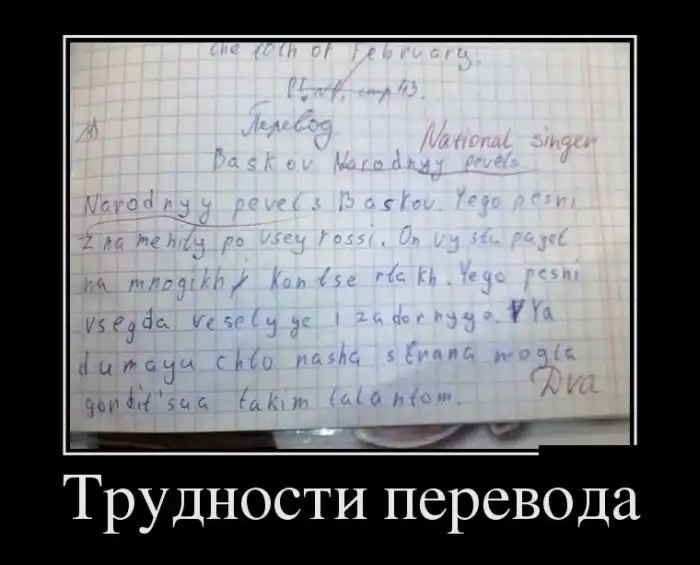 the 10th of February.
стр 43.
Перевод
National singer
Baskov Narodnyy pevets
Narodnyy pevets Baskov. Yego pesni
znamenity po vsey rossi. On vystupayet
na mnogikh kontsertakh. Yego pesni
vsegda veselyye i zadornyye. Ya
dumayu chto nasha strana mogla
gordit'sua takim talantom.
Dva
Трудности перевода